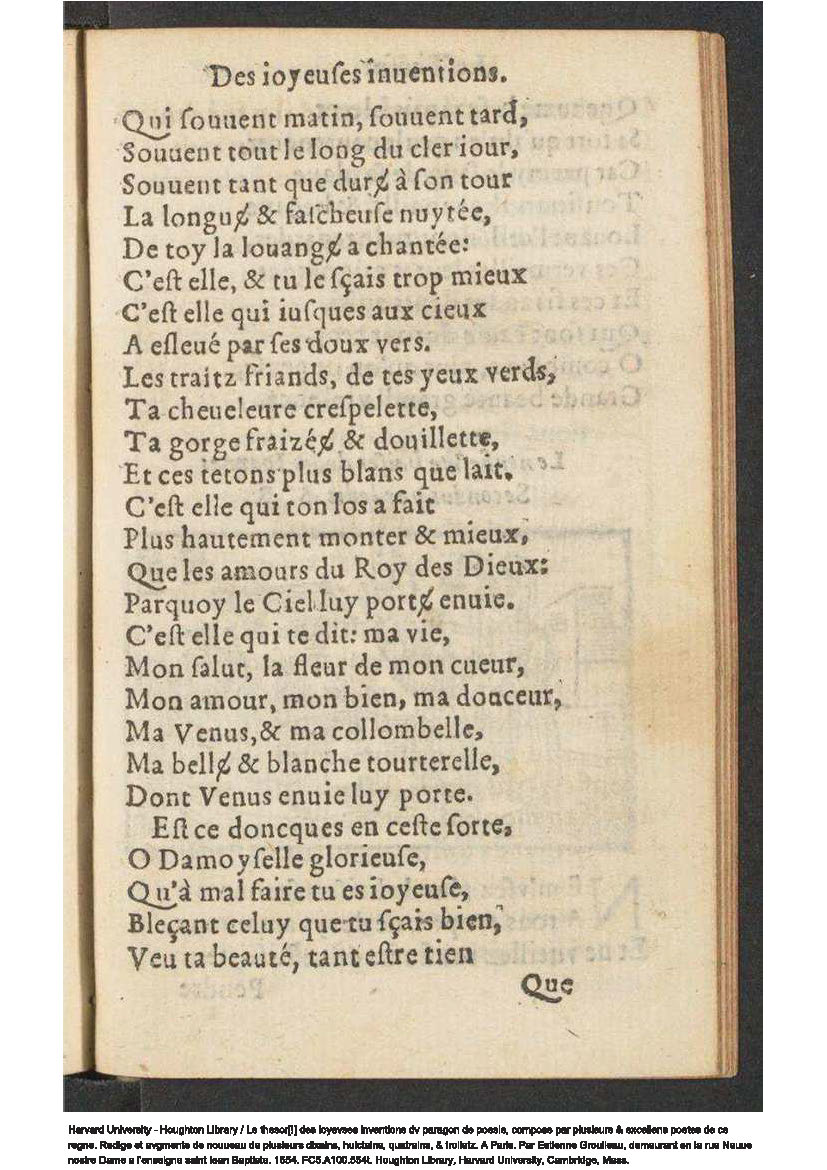 Des ioyeuſes inuentions.
Qui ſouuent matin, ſouuent tard,
Souuent tout le long du cler iour,
Souuent tant que durɇ à ſon tour
La longuɇ & faſcheuſe nuytée,
De toy la louangɇ a chantée:
C'eſt elle, & tu le ſçais trop mieux
C'eſt elle qui iuſques aux cieux
A eſleué par ſes doux vers.
Les traitz friands, de tes yeux verds,
Ta cheueleure creſpelette,
Ta gorge fraizéɇ & douillette,
Et ces tetons plus blans que lait.
C'eſt elle qui ton los a fait
Plus hautement monter & mieux,
Que les amours du Roy des Dieux:
Parquoy le Ciel luy portɇ enuie.
C'eſt elle qui te dit: ma vie,
Mon ſalut, la fleur de mon cueur,
Mon amour, mon bien, ma douceur,
Ma Venus, & ma collombelle,
Ma bellɇ & blanche tourterelle,
Dont Venus enuie luy porte.
Eſt ce doncques en ceſte ſorte,
O Damoyſelle glorieuſe,
Qu'à mal faire tu es ioyeuſe,
Bleçant celuy que tu ſçais bien,
Veu ta beauté, tant eſtre tien
Que
Harvard University - Houghton Library / Le thesor[!] des ioyevses inventions dv paragon de poesie, compose par plusieurs & excellens poetes de ce
regne. Redige et avgmente de nouueau de plusieurs dixains, huictains, quatrains, & triolletz. A Paris. Par Estienne Groulleau, demeurant en la rue Neuue
nostre Dame a l'enseigne saint Iean Baptiste. 1554. FC5.A100.554t. Houghton Library, Harvard University, Cambridge, Mass.